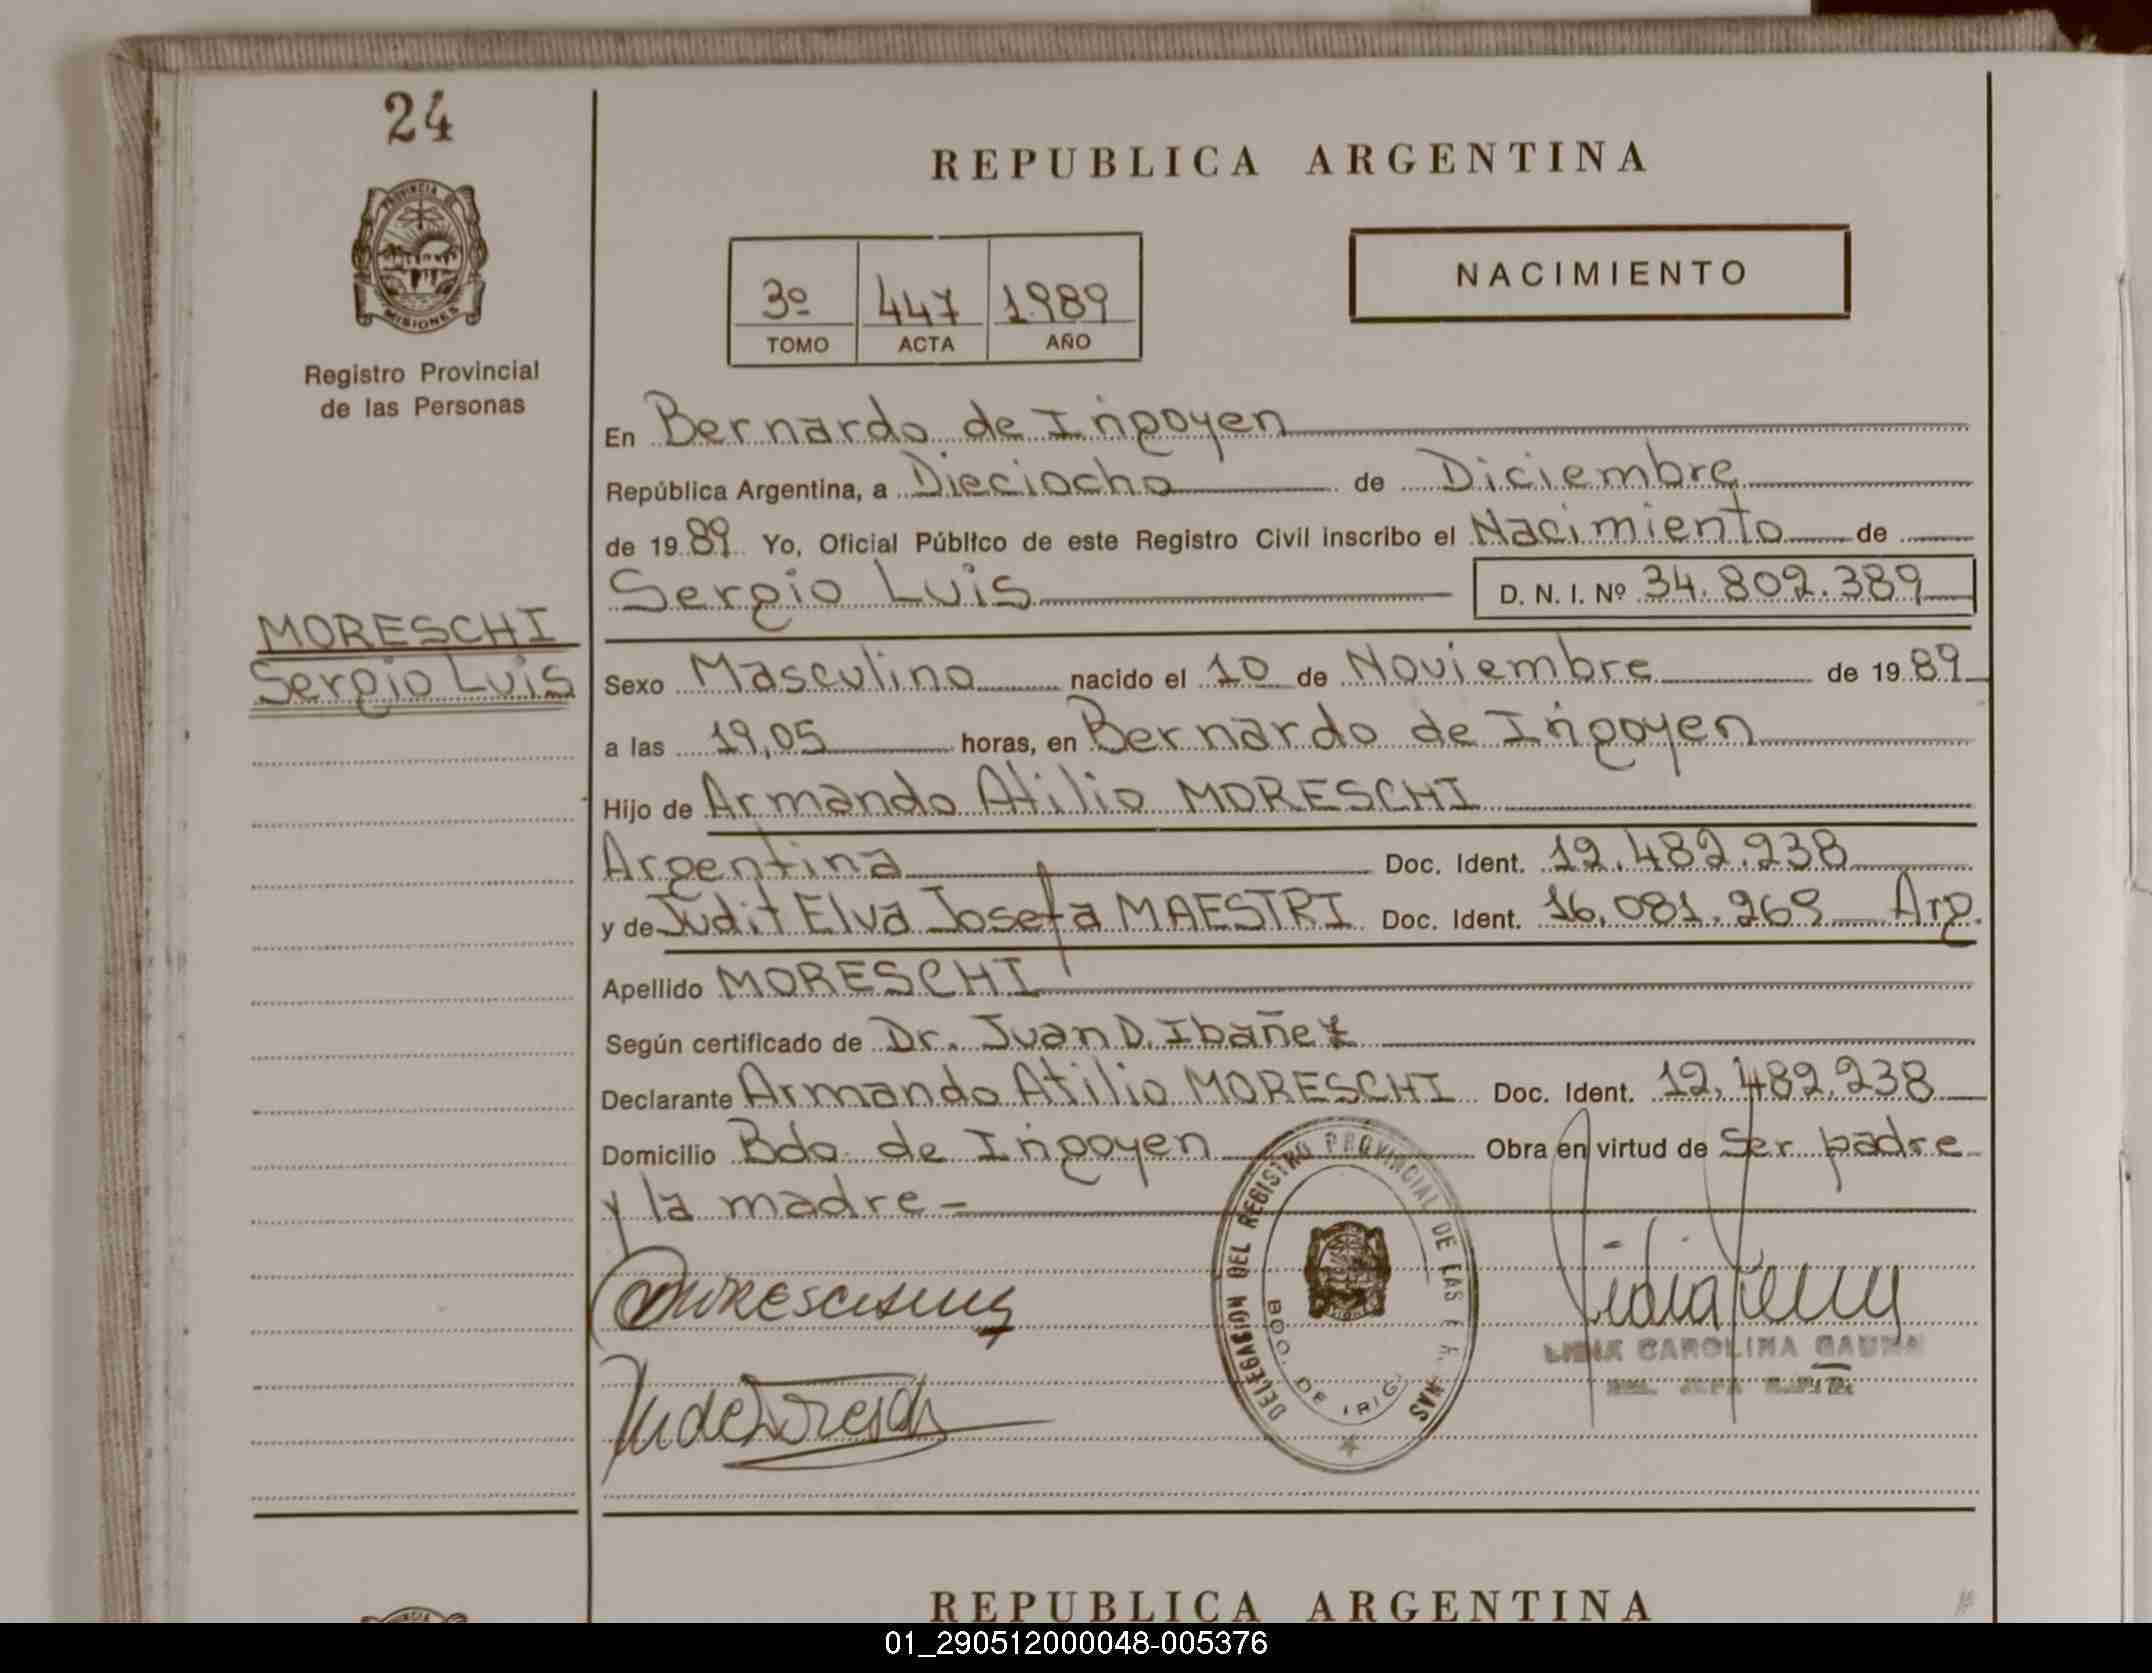 24
REPUBLICA ARGENTINA
PROVINCIA DE
MISIONES
Registro Provincial
de las Personas
3º 447 1989
TOMO ACTA AÑO
NACIMIENTO
En Bernardo de Irigoyen
República Argentina, a Dieciocho de Diciembre
de 1989 Yo, Oficial Público de este Registro Civil inscribo el Nacimiento de
Sergio Luis D. N. I. Nº 34.802.389
MORESCHI
Sergio Luis
Sexo Masculino nacido el 10 de Noviembre de 1989
a las 19,05 horas, en Bernardo de Irigoyen
Hijo de Armando Atilio MORESCHI
Argentina Doc. Ident. 12.482.238
y de Judit Elva Josefa MAESTRI Doc. Ident. 16.081.269 Arg.
Apellido MORESCHI
Según certificado de Dr. Juan D. Ibañez
Declarante Armando Atilio MORESCHI Doc. Ident. 12.482.238
Domicilio Bdo de Irigoyen Obra en virtud de Ser padre
y la madre -
DELEGACION DEL REGISTRO PROVINCIAL DE LAS
BDO. DE IRIG.
LIDIA CAROLINA GAUNA
REPUBLICA ARGENTINA
01_290512000048-005376